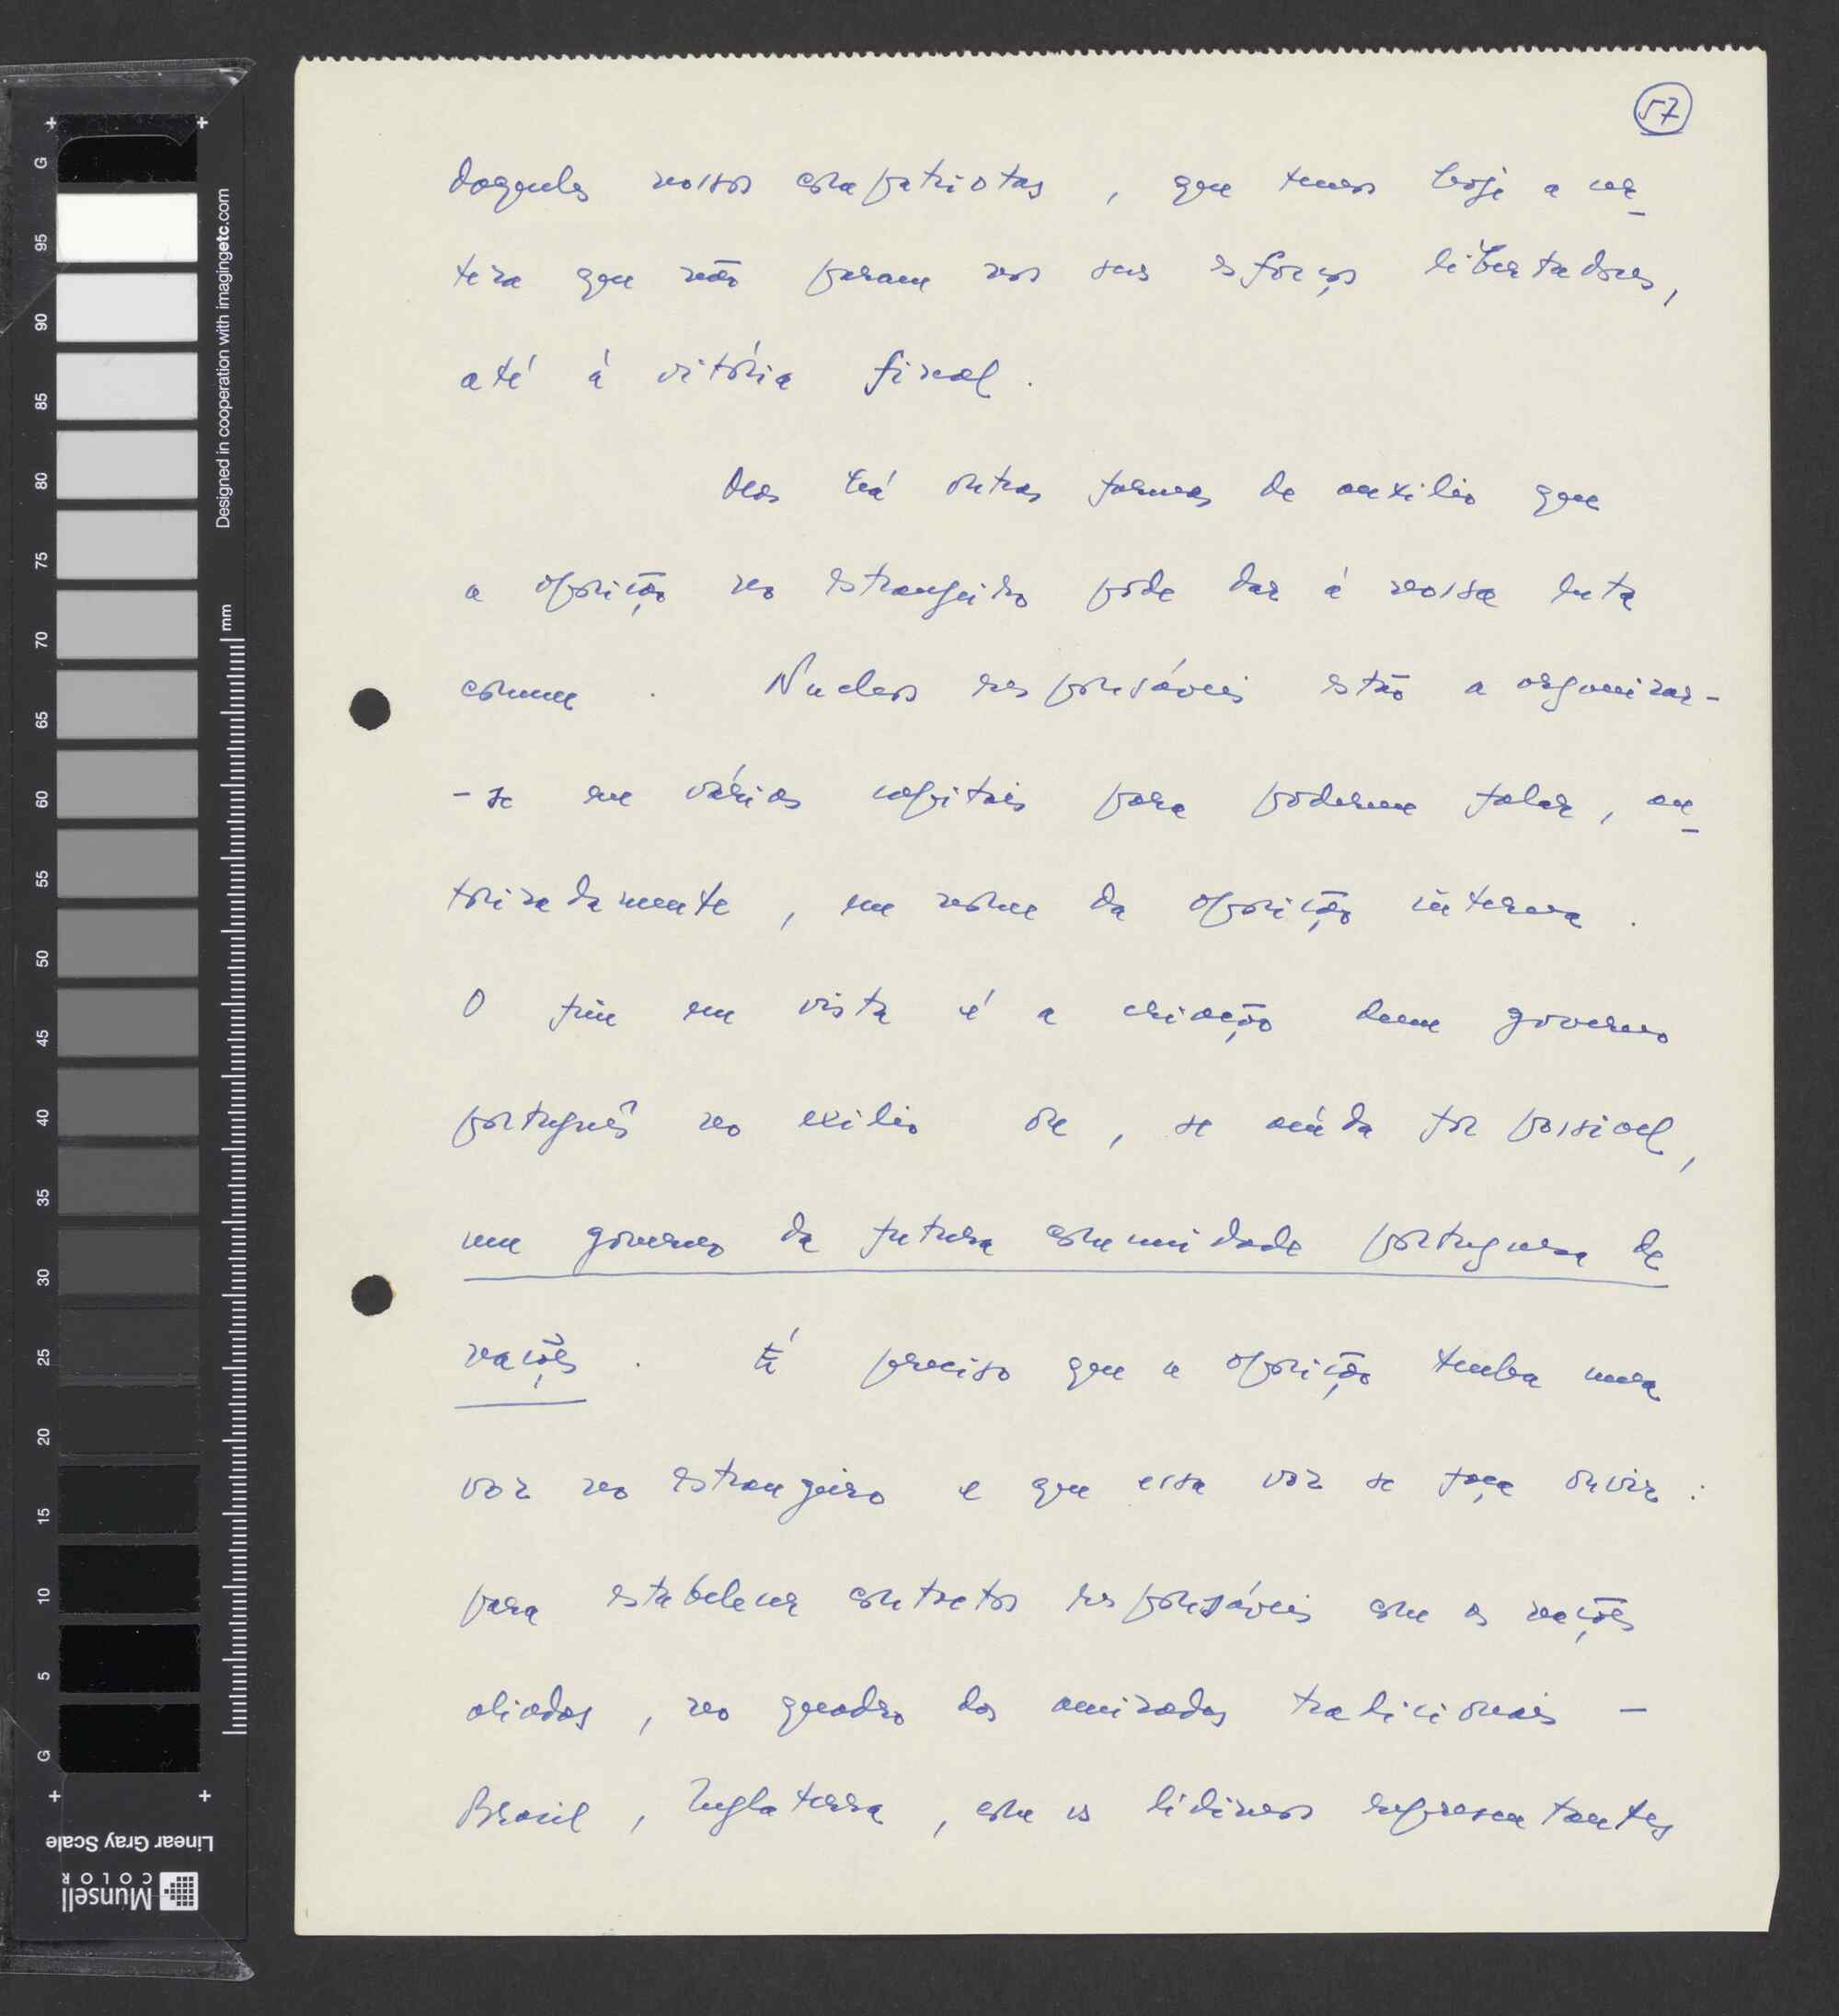 57
daqueles nossos compatriotas, que temos hoje a cer
teza que não param nos seus esforços libertadores,
até à vitória final.
Mas há outras formas de auxilio que
a oposição no estrangeiro pode dar à nossa luta
comum. Nucleos responsáveis estão a organizar-
-se em várias capitais para poderem falar, au
torizadamente, em nome da oposição interna.
O fim em vista é a criação dum governo
português no exilio ou, se ainda for possivel,
um governo da futura comunidade portuguesa de
nações. É preciso que a oposição tenha uma
voz no estrangeiro e que essa voz se faça ouvir:
para estabelecer contactos responsáveis com as nações
aliadas, no quadro das amizades tradicionais -
Brasil, Inglaterra, com os lidimos representantes
G
95
90
85
80
75
70
65
60
55
50
45
40
35
30
25
20
15
10
5
G
Designed in cooperation with imagingetc.com
mm
Linear Gray Scale
Munsell
COLOR